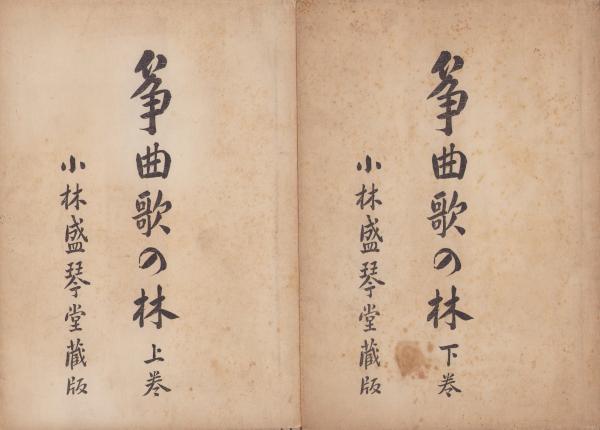 箏曲歌の林 上巻
小林盛琴堂蔵版
箏曲歌の林 下巻
小林盛琴堂蔵版